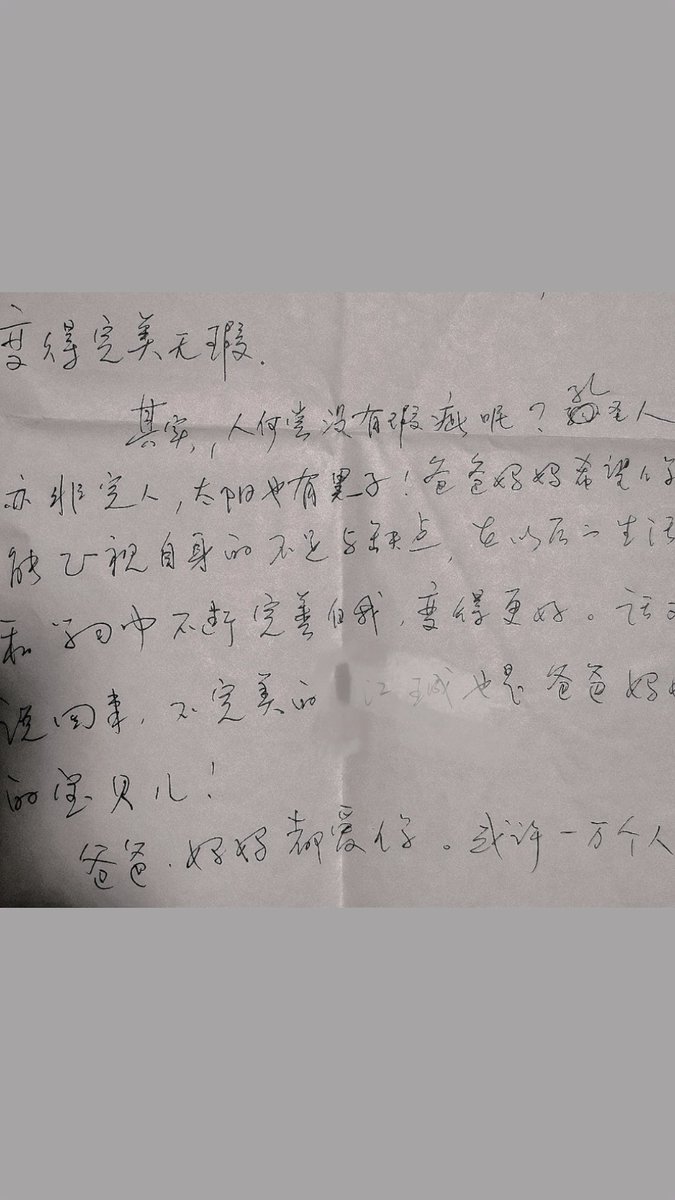 变得完美无瑕.
其实,人何尝没有瑕疵呢?孔圣人
亦非完人,太阳也有黑子!爸爸妈妈希望你
能正视自身的不足与缺点,在以后的生活
和学习中不断完善自我,变得更好。话又
说回来,不完美的 江城也是爸爸妈妈
的宝贝儿!
爸爸、妈妈都爱你。或许一万个人